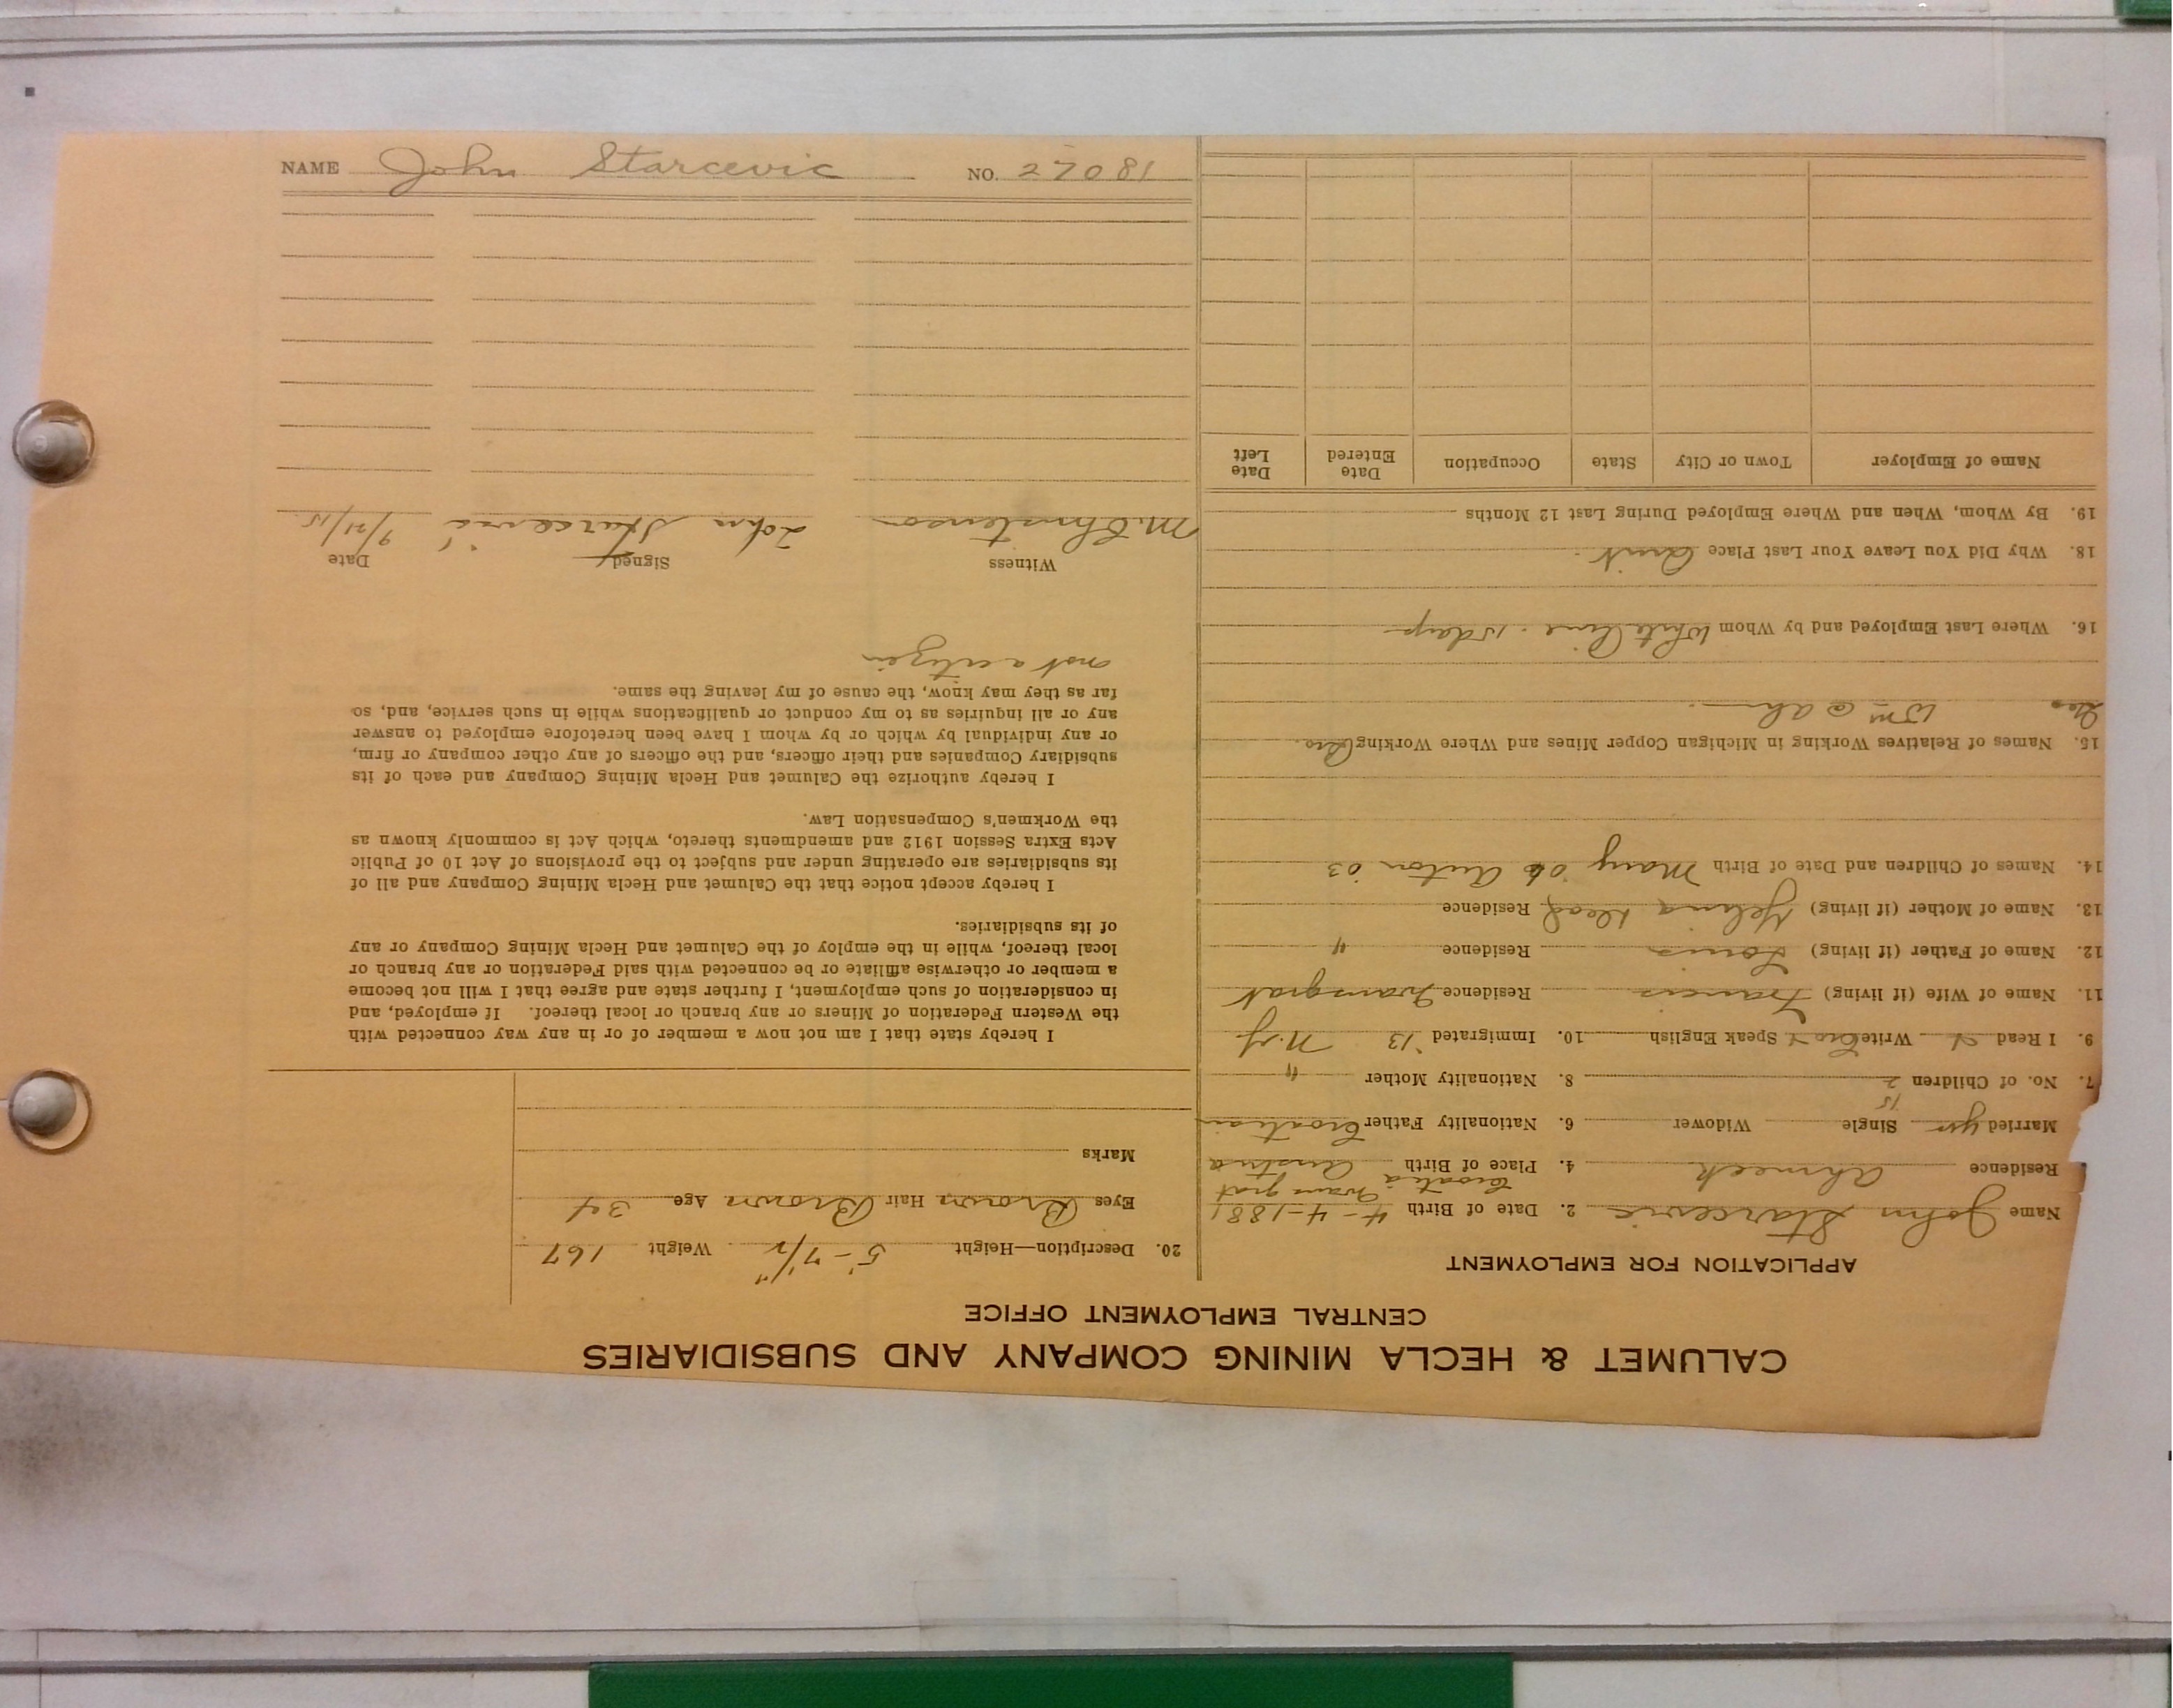 NAME John Starcevic NO. 27081
CALUMET & HECLA MINING COMPANY AND SUBSIDIARIES
CENTRAL EMPLOYMENT OFFICE
APPLICATION FOR EMPLOYMENT
Name John Starcevic 2. Date of Birth 4-4-1881
Croatia
Residence Ahmeek 4. Place of Birth Austria
Married yes Single Widower 6. Nationality Father Croatian
15
7. No. of Children 2 8. Nationality Mother "
9. I Read & Write Cro & Speak English 10. Immigrated '13 N.Y
11. Name of Wife (if living) Francis Residence
12. Name of Father (if living) Louis Residence "
13. Name of Mother (if living) Dead Residence
14. Names of Children and Date of Birth Mary Anton 03
15. Names of Relatives Working in Michigan Copper Mines and Where Working Bro.
Geo Wm @ Ah
16. Where Last Employed and by Whom White Pine. 15 days
18. Why Did You Leave Your Last Place Quit
19. By Whom, When and Where Employed During Last 12 Months
Name of Employer Town or City State Occupation Date Entered Date Left
20. Description—Height 5'-7 1/2" Weight 167
Eyes Brown Hair Brown Age 34
Marks
I hereby state that I am not now a member of or in any way connected with
the Western Federation of Miners or any branch or local thereof. If employed, and
in consideration of such employment, I further state and agree that I will not become
a member or otherwise affiliate or be connected with said Federation or any branch or
local thereof, while in the employ of the Calumet and Hecla Mining Company or any
of its subsidiaries.
I hereby accept notice that the Calumet and Hecla Mining Company and all of
its subsidiaries are operating under and subject to the provisions of Act 10 of Public
Acts Extra Session 1912 and amendments thereto, which Act is commonly known as
the Workmen's Compensation Law.
I hereby authorize the Calumet and Hecla Mining Company and each of its
subsidiary Companies and their officers, and the officers of any other company or firm,
or any individual by which or by whom I have been heretofore employed to answer
any or all inquiries as to my conduct or qualifications while in such service, and, so
far as they may know, the cause of my leaving the same.
not a citizen
Witness Signed Date
M. Christenson John Starcevic 9/21/15